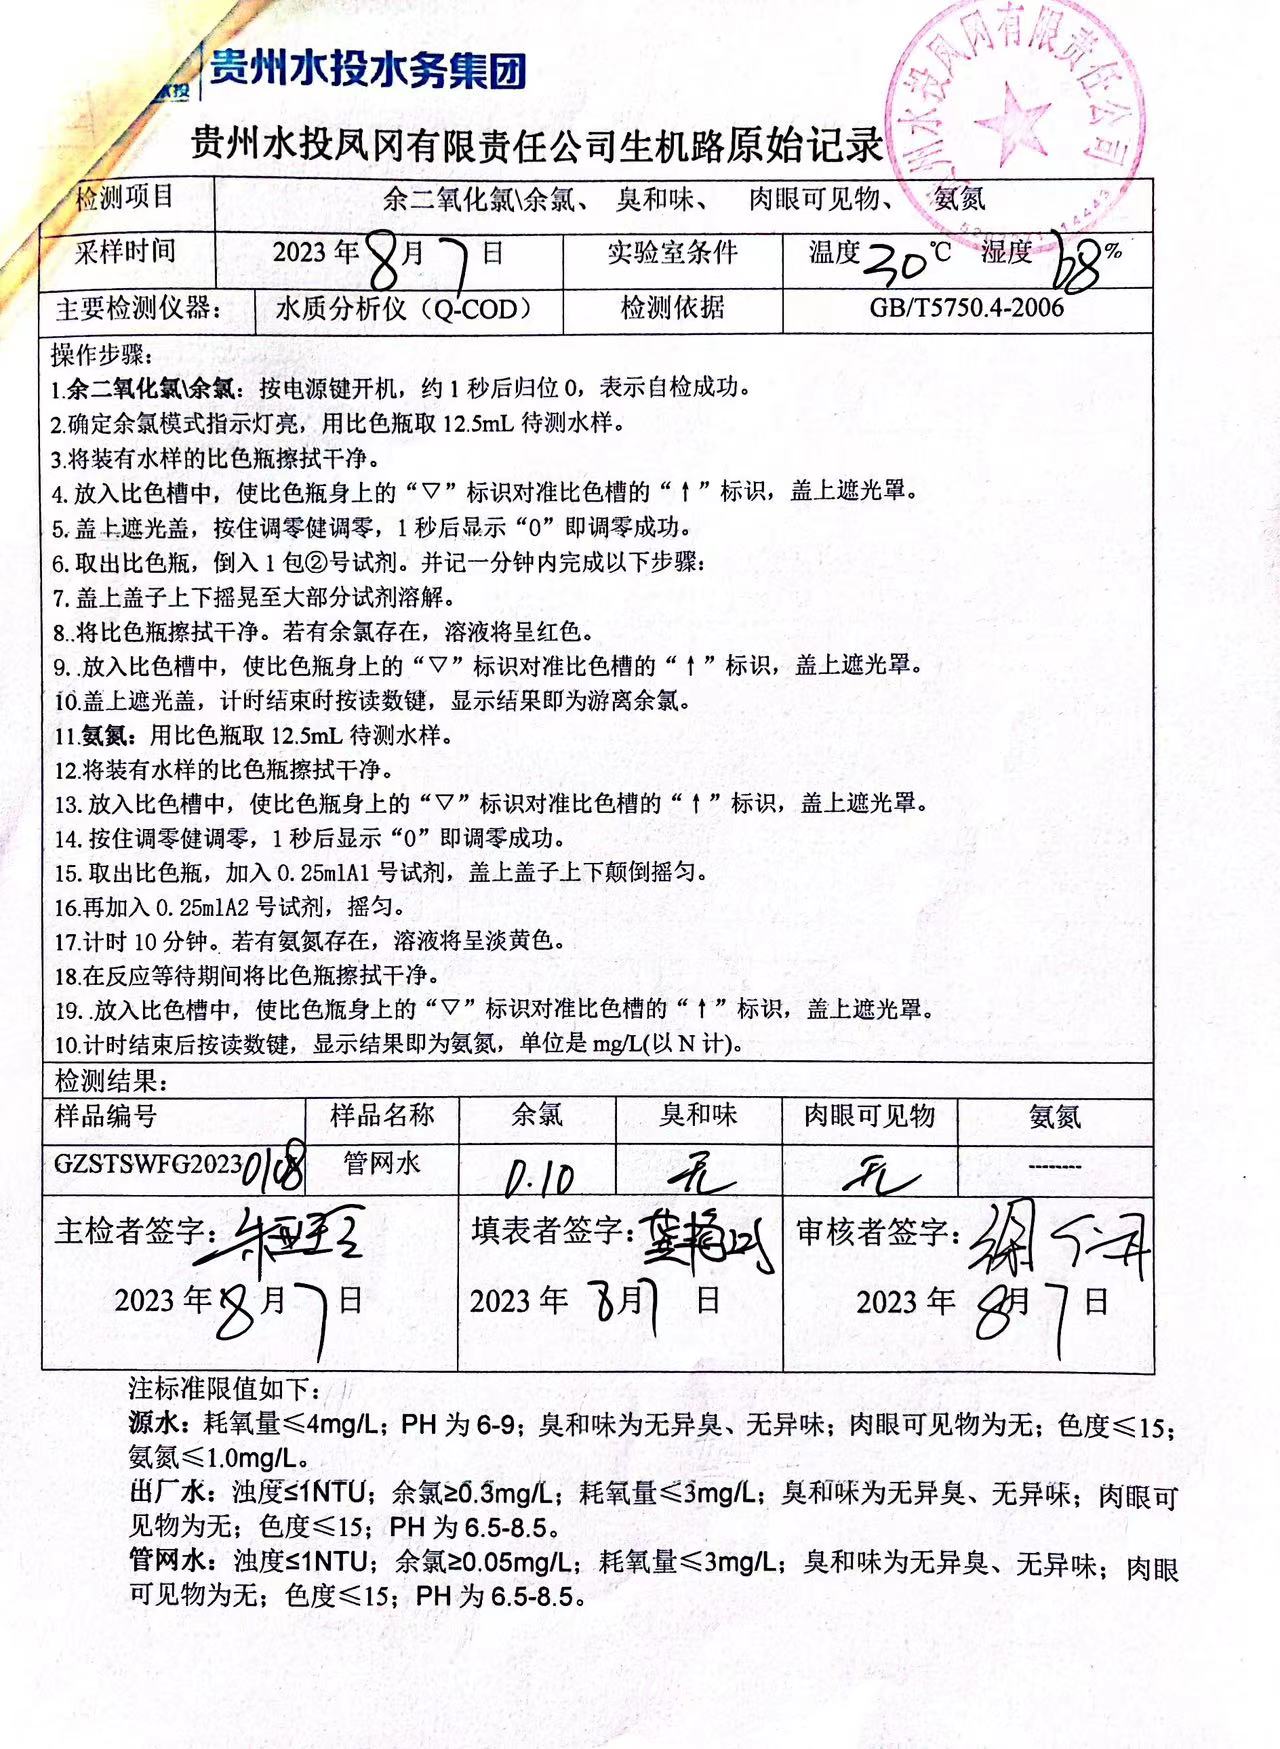 水投 贵州水投水务集团
贵州水投凤冈有限责任公司生机路原始记录
州水投凤冈有限责任公司
检测项目 余二氧化氯\余氯、 臭和味、 肉眼可见物、 氨氮
采样时间 2023年8月7日 实验室条件 温度30℃ 湿度68%
主要检测仪器： 水质分析仪（Q-COD） 检测依据 GB/T5750.4-2006
操作步骤：
1.余二氧化氯\余氯：按电源键开机，约1秒后归位0，表示自检成功。
2.确定余氯模式指示灯亮，用比色瓶取12.5mL待测水样。
3.将装有水样的比色瓶擦拭干净。
4.放入比色槽中，使比色瓶身上的“▽”标识对准比色槽的“↑”标识，盖上遮光罩。
5.盖上遮光盖，按住调零健调零，1秒后显示“0”即调零成功。
6.取出比色瓶，倒入1包②号试剂。并记一分钟内完成以下步骤：
7.盖上盖子上下摇晃至大部分试剂溶解。
8..将比色瓶擦拭干净。若有余氯存在，溶液将呈红色。
9. .放入比色槽中，使比色瓶身上的“▽”标识对准比色槽的“↑”标识，盖上遮光罩。
10.盖上遮光盖，计时结束时按读数键，显示结果即为游离余氯。
11.氨氮：用比色瓶取12.5mL待测水样。
12.将装有水样的比色瓶擦拭干净。
13.放入比色槽中，使比色瓶身上的“▽”标识对准比色槽的“↑”标识，盖上遮光罩。
14.按住调零健调零，1秒后显示“0”即调零成功。
15.取出比色瓶，加入0.25mlA1号试剂，盖上盖子上下颠倒摇匀。
16.再加入0.25mlA2号试剂，摇匀。
17.计时10分钟。若有氨氮存在，溶液将呈淡黄色。
18.在反应等待期间将比色瓶擦拭干净。
19. .放入比色槽中，使比色瓶身上的“▽”标识对准比色槽的“↑”标识，盖上遮光罩。
10.计时结束后按读数键，显示结果即为氨氮，单位是mg/L(以N计)。
检测结果：
样品编号 样品名称 余氯 臭和味 肉眼可见物 氨氮
GZSTSWFG20230108 管网水 0.10 无 无 --------
主检者签字： 填表者签字： 审核者签字：
2023年8月7日 2023年8月7日 2023年8月7日
注标准限值如下：
源水：耗氧量≤4mg/L；PH为6-9；臭和味为无异臭、无异味；肉眼可见物为无；色度≤15；
氨氮≤1.0mg/L。
出厂水：浊度≤1NTU；余氯≥0.3mg/L；耗氧量≤3mg/L；臭和味为无异臭、无异味；肉眼可
见物为无；色度≤15；PH为6.5-8.5。
管网水：浊度≤1NTU；余氯≥0.05mg/L；耗氧量≤3mg/L；臭和味为无异臭、无异味；肉眼
可见物为无；色度≤15；PH为6.5-8.5。